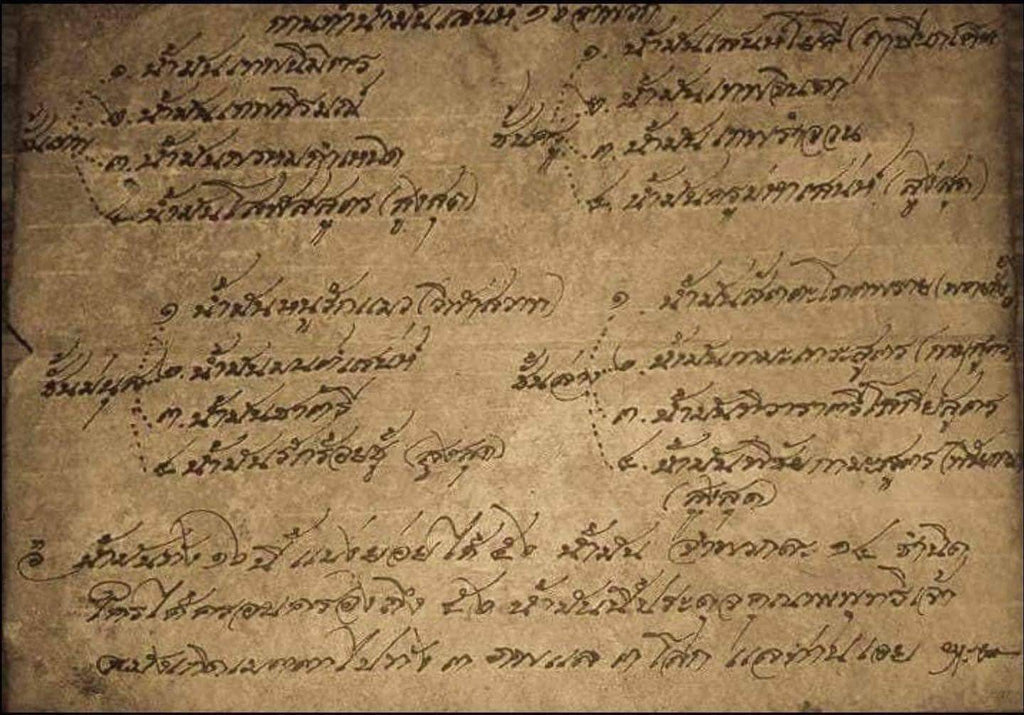 การทำน้ำมันเสน่ห์ ๑๖ จำพวก
ชั้นเทพ
๑. น้ำมันเทพนิมิตร
๒. น้ำมันเทพภิรมณ์
๓. น้ำมันพรหมกำเหนิด
๔. น้ำมันโสฬสสูตร (สูงสุด)
ชั้นครู
๑. น้ำมันเสน่ห์โยคี
๒. น้ำมันเทพจินดา
๓. น้ำมันเทพรำจวน
๔. น้ำมันครูมหาเสน่ห์ (สูงสุด)
ชั้นมนุษ
๑ น้ำมันหนูรักแมว
๒. น้ำมันมนต์เสน่ห์
๓. น้ำมันชาตรี
๔ น้ำมันรักร้อยชู้ (สูงสุด)
ชั้นล่าง
๑. น้ำมันสัตตะโภคพราย
๒. น้ำมันกามะเการะสูตร (กามสูตร)
๓. น้ำมันทิวาราตรีโภคีย์สูตร
๔. น้ำมันพิชัยกามะสูตร
(สูงสุด)
น้ำมันทั้ง ๑๖ นี้ แบ่งย่อยได้ ๕๖ น้ำมัน จำพวกละ ๑๔ ชำนิด
ใครได้ครอบครองถึง ๕๖ น้ำมันนี้ประดุจคุณพพุทธิเจ้า
บังเกิดเมตตาไปทั้ง ๓ ภพแล ๓ โลก แลท่านเอย